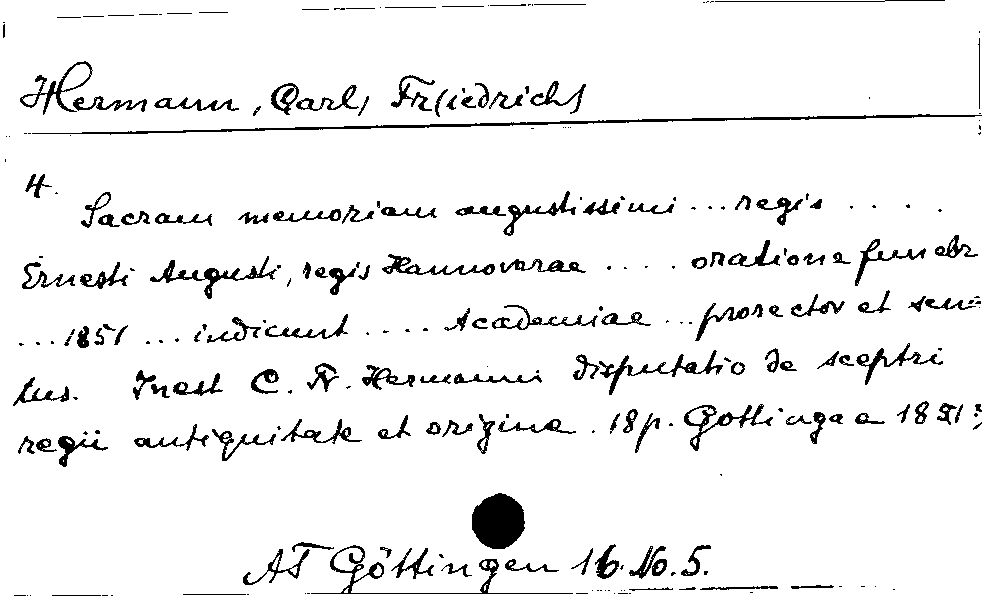 Hermann, Carl, Fr(iedrich)
4.
Sacram memoriam augustissimi ... regis ....
Ernesti Augusti, regis Hannoverae .... oratione funebr
... 1851 ... indicunt .... Academiae ... prorector et sen=
tus. Inest C. Fr. Hermanni disputatio de sceptri
regii antiquitate et origine. 18 p. Gottingae 1851;
AT Göttingen 16. No. 5.